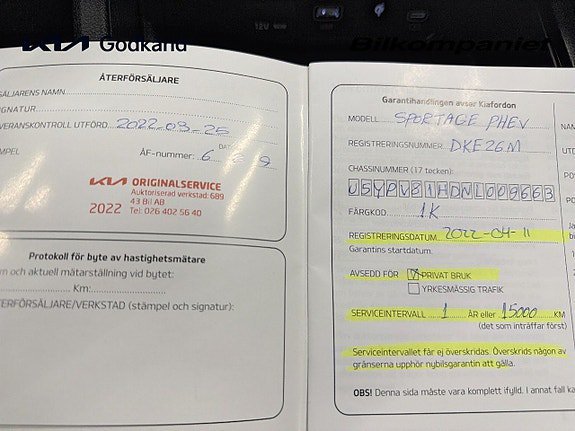 12V
KIA Godkänd
Bilkompaniet
ÅTERFÖRSÄLJARE
SÄLJARENS NAMN
IGNATUR
VERANSKONTROLL UTFÖRD 2022-03-25
DAT
MPEL
ÅF-nummer: 6 8 9
KIA ORIGINALSERVICE
Auktoriserad verkstad: 689
43 Bil AB
2022 Tel: 026 402 56 40
Protokoll för byte av hastighetsmätare
m och aktuell mätarställning vid bytet:
Km:
TERFÖRSÄLJARE/VERKSTAD (stämpel och signatur):
Garantihandlingen avser Kiafordon
MODELL SPORTAGE PHEV
REGISTRERINGSNUMMER DKE26M
CHASSINUMMER (17 tecken):
U5YPV81HDNL009663
FÄRGKOD 1K
REGISTRERINGSDATUM 2022-04-11
Garantins startdatum.
AVSEDD FÖR PRIVAT BRUK
YRKESMÄSSIG TRAFIK
SERVICEINTERVALL 1 ÅR eller 15000 KM
(det som inträffar först)
Serviceintervallet får ej överskridas. Överskrids någon av
gränserna upphör nybilsgarantin att gälla.
OBS! Denna sida måste vara komplett ifylld. I annat fall ka
NAM
UTD
POS
PO
Ja
bi